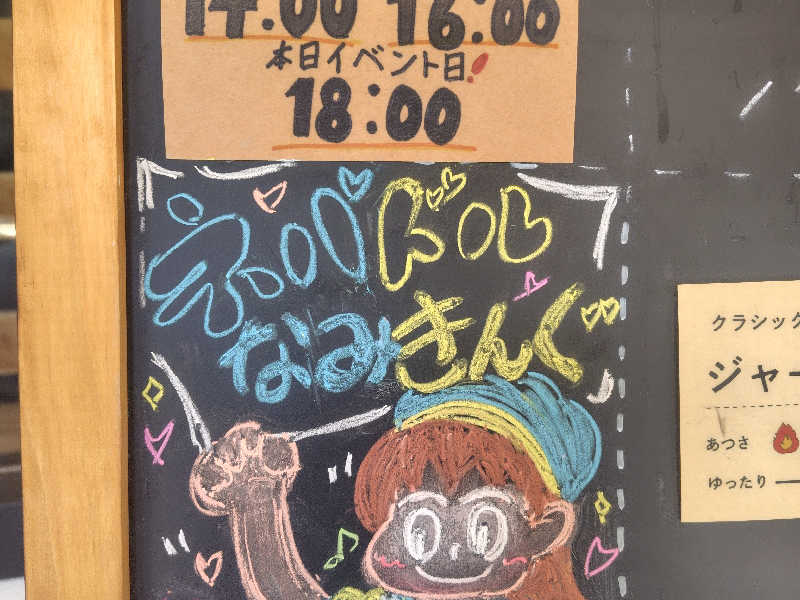 14:00 16:00
本日イベント日!
18:00
ネパドル
なみきんぐ
クラシック
ジャー
あつさ
ゆったり